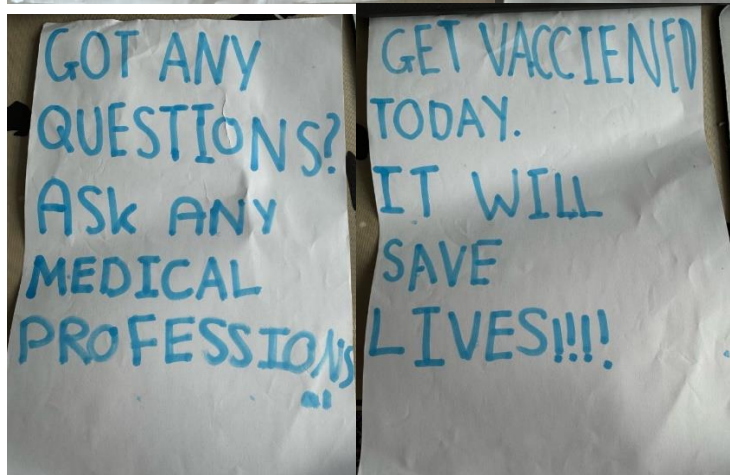 GOT ANY
QUESTIONS?
ASK ANY
MEDICAL
PROFESSIONS
al
GET VACCIENED
TODAY.
IT WILL
SAVE
LIVES!!!!